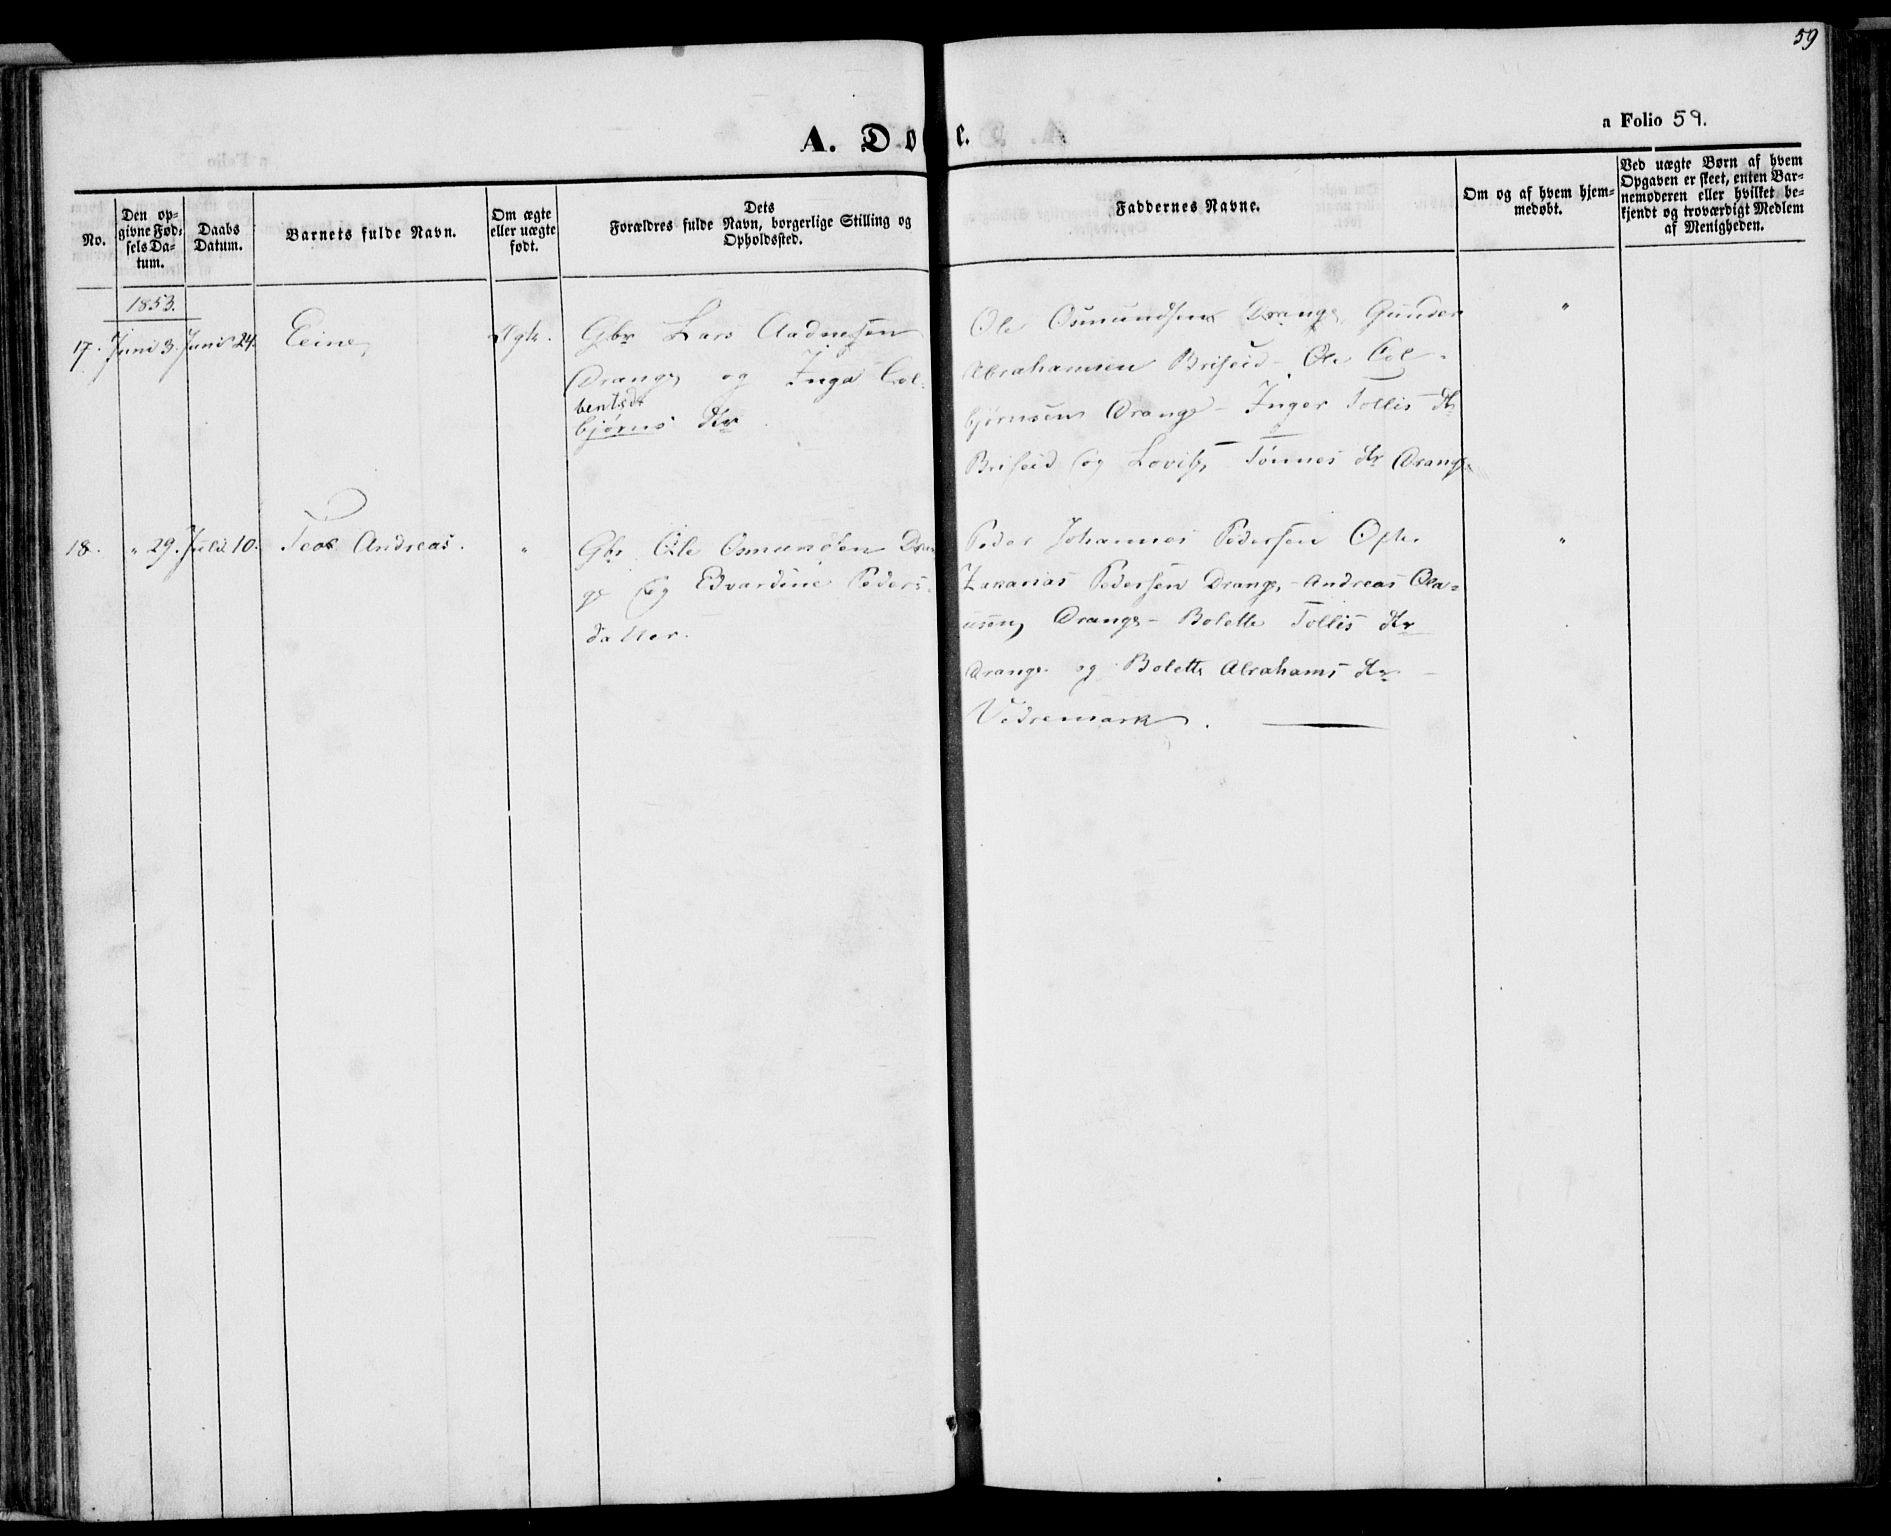 59
a Folio 59.
A. Do e.
No.
Den op-
givne Fød-
sels Da-
tum.
Daabs
Datum.
Barnets fulde Navn.
Om ægte
eller uægte
født.
Dets
Forældres fulde Navn, borgerlige Stilling og
Opholdssted.
Faddernes Navne.
Om og af hvem hjem-
medøbt.
Ved uægte Børn af hvem
Opgaven er skeet, enten Bar-
nemoderen eller hvilket be-
kjendt og troværdigt Medlem
af Menigheden.
1853.
17. Juni 3. Juni 24. Eeine Ægte. Gbr Lars Aadnesen
Drange og Inga Col-
bentsdr
bjørns dtr
Ole Osmundsen Drange, Gunder "
Abrahamsen Briseid - Ole Col-
bjørnsen Drange - Inger Tollis dtr
Briseid og Lovise Tønnes dtr Drange
18. " 29. Juli 10. Teos Andreas. " Gbr Ole Osmundsen Dran
ge og Edvardine Peders-
datter.
Peder Johannes Pedersen Ofte. "
Zakarias Pedersen Drange, - Andreas Ola-
usen, Drange - Bolette Tollis dtr
Drange og Bolette Abrahams dtr -
Vedremark.